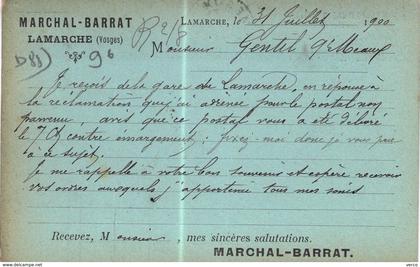 MARCHAL-BARRAT
LAMARCHE (Vosges)
LAMARCHE, le 31 Juillet 1900
R 2/8
96
Monsieur Gentil à Meaux
Je reçois de la gare de Lamarche, en réponse à
la réclamation que j'ai adressée pour le postal non
parvenu, avis que ce postal vous a été délivré
le 7 contre émargement ; fixez moi donc je vous prie
à ce sujet.
Je me rappelle à votre bon souvenir et espère recevoir
vos ordres auxquels j'apporterai tous mes soins
Recevez, Monsieur, mes sincères salutations.
MARCHAL-BARRAT.